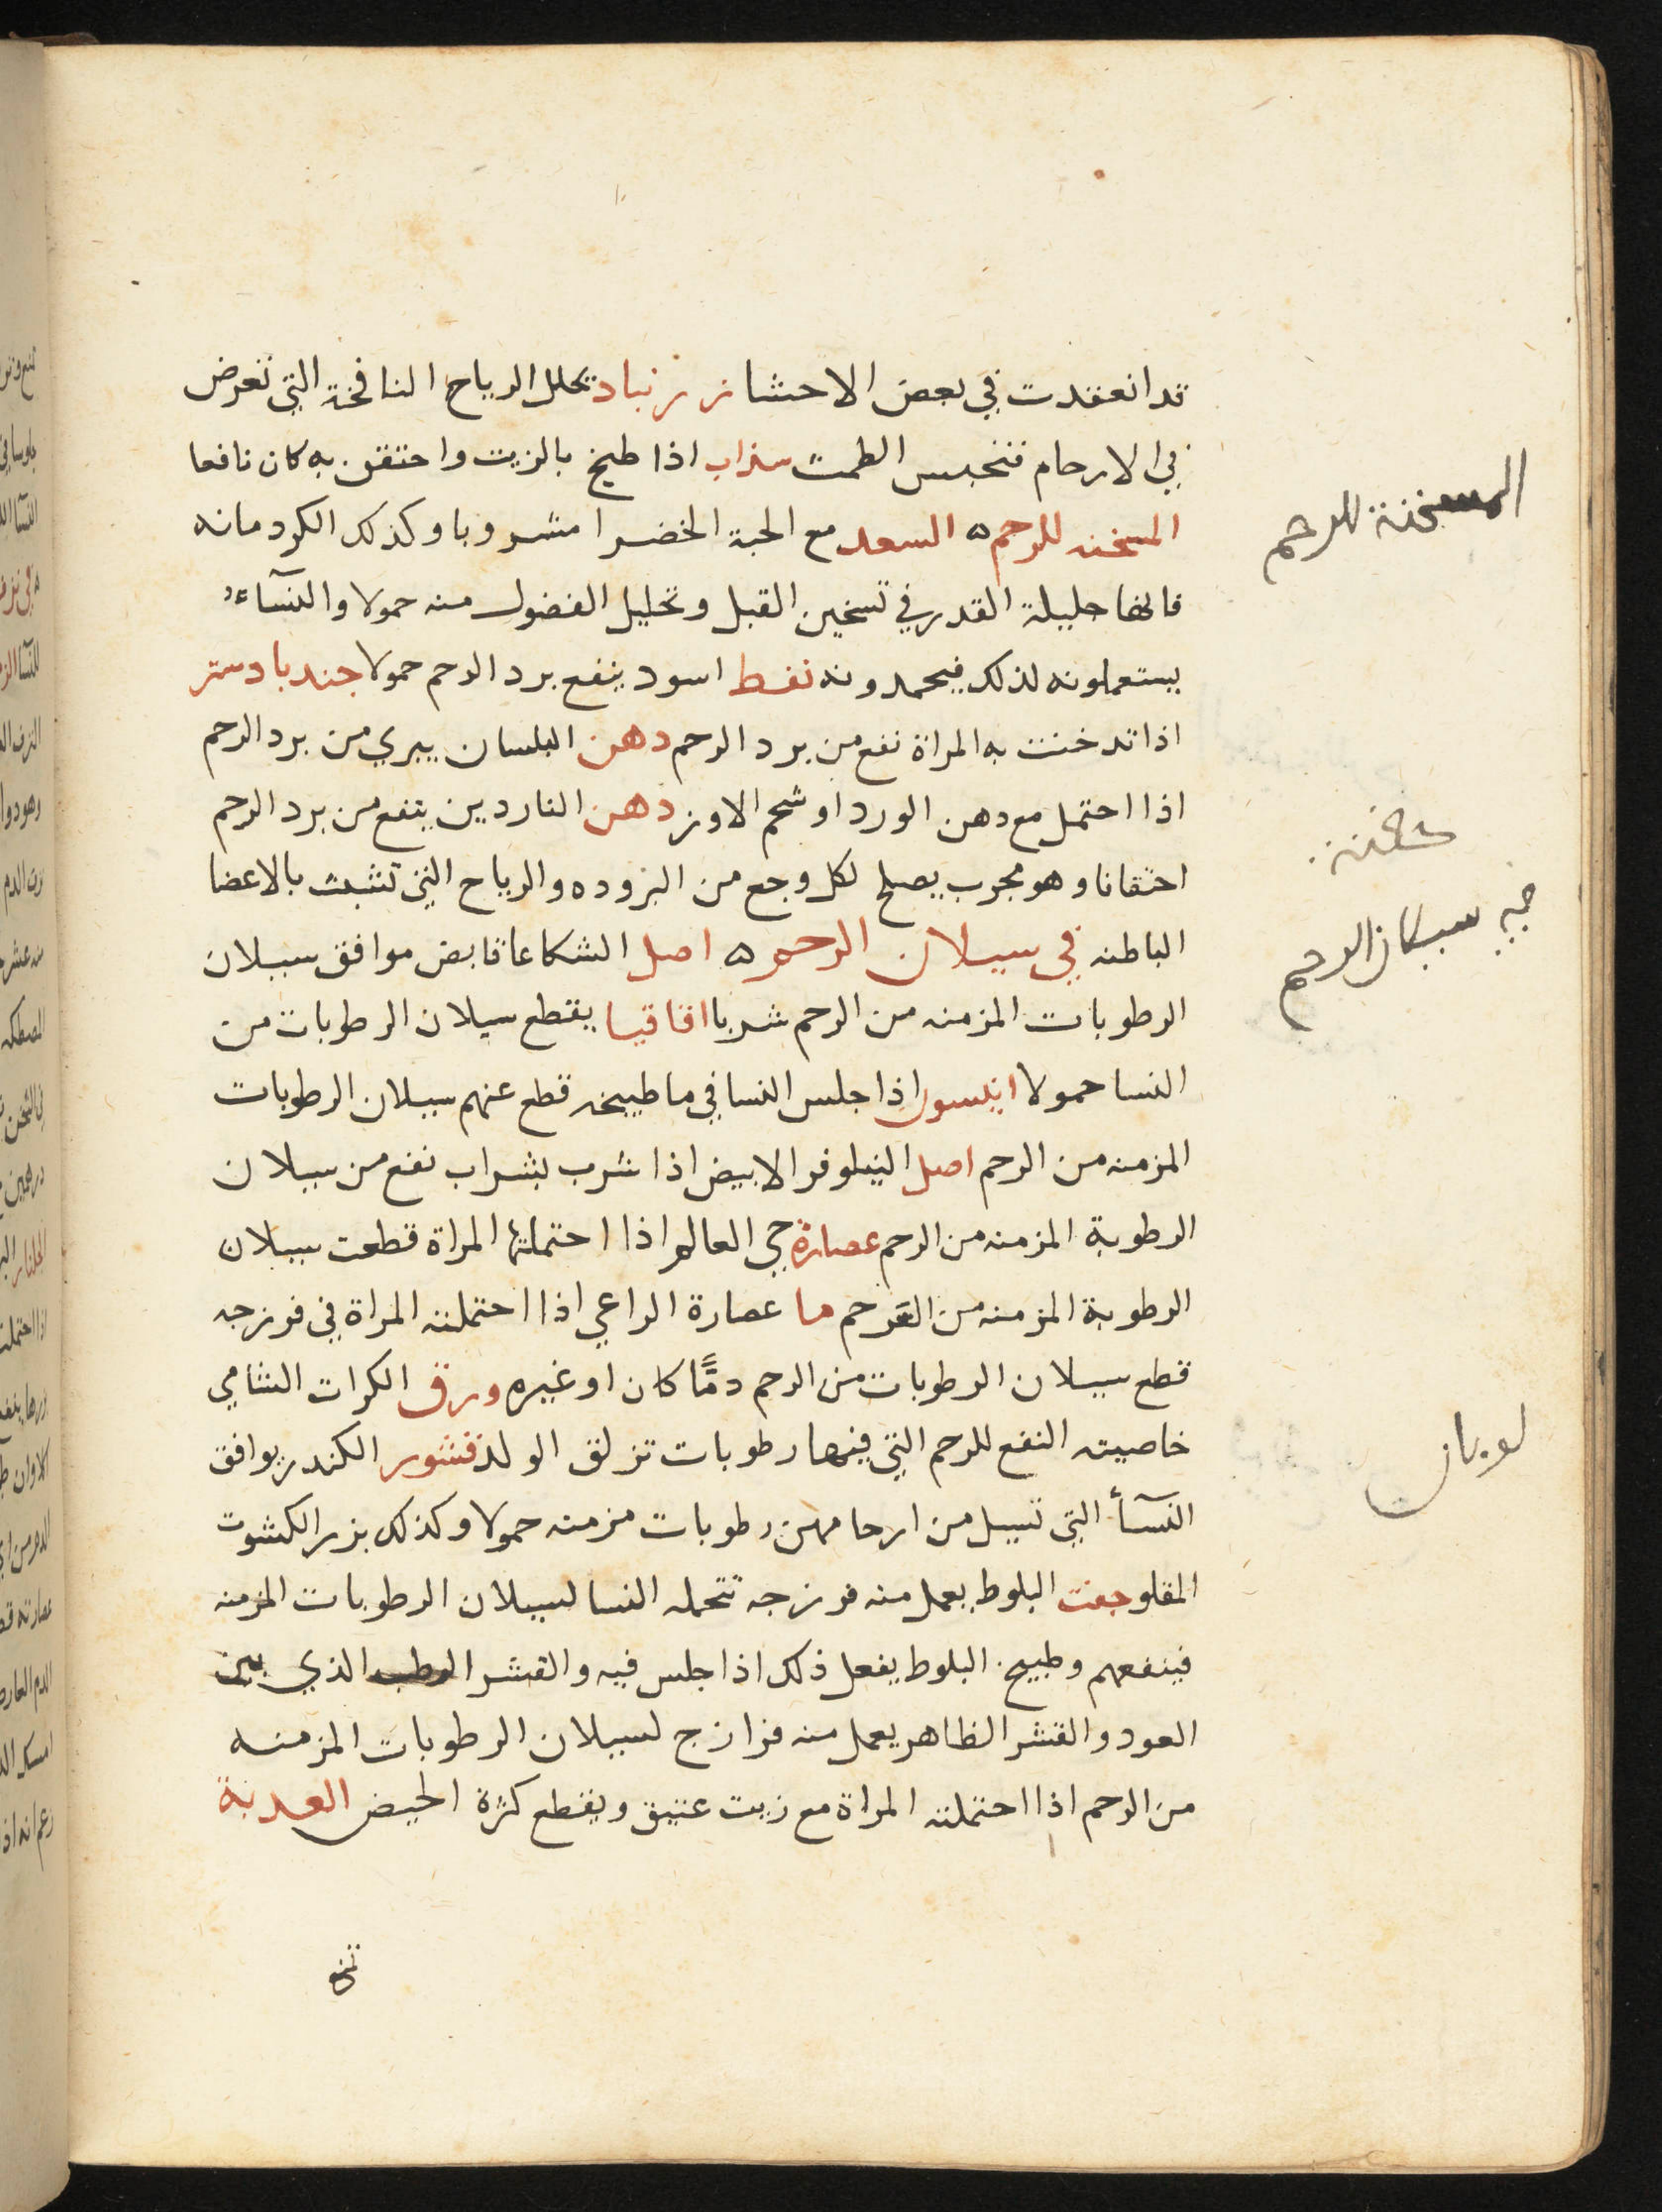 قد انعقدت في بعض الاحشا زرنباد تحلل الرياح النافخة التي تعرض
في الارحام فتحبس الطمث سذاب اذا طبخ بالزيت واحتقن به كان نافعا
المسخنه للرحم ه السعد مع الحبة الخضرا مشروبا وكذلك الكردمانه
فانها جليلة القدر في تسخين القبل وتحليل الفضول منه حمولا والنسآء
يستعملونه لذلك فيحمدونه نفط اسود ينفع برد الرحم حمولا جندبادستر
اذا تدخنت به المراة نفع من برد الرحم دهن البلسان يبري من برد الرحم
اذا احتمل مع دهن الورد او شحم الاوز دهن الناردين ينفع من برد الرحم
احتقانا وهو مجرب يصلح لكل وجع من البروده والرياح التي تتشبث بالاعضا
الباطنه في سيلان الرحم ه اصل الشكاعا قابض موافق سيلان
الرطوبات المزمنه من الرحم شربا اقاقيا يقطع سيلان الرطوبات من
النسا حمولا انيسون اذا جلس النسا في ما طبيخه قطع عنهم سيلان الرطوبات
المزمنه من الرحم اصل النيلوفر الابيض اذا شرب بشراب نفع من سيلان
الرطوبة المزمنه من الرحم عصارة حي العالم اذا احتملتها المراة قطعت سيلان
الرطوبة المزمنه من الرحم ما عصارة الراعي اذا احتملته المراة في فرزجه
قطع سيلان الرطوبات من الرحم دمًّا كان او غيره ورق الكراث الشامي
خاصيته النفع للرحم التي فيها رطوبات تزلق الولد قشور الكندر يوافق
النسآ التي تسيل من ارحامهن رطوبات مزمنه حمولا وكذلك بزر الكشوت
المقلو جفت البلوط يعمل منه فرزجه تتحمله النسا لسيلان الرطوبات المزمنه
فينفعهم وطبيخ البلوط يفعل ذلك اذا جلس فيه والقشر الرطب الذي بين
العود والقشر الظاهر يعمل منه فرازج لسيلان الرطوبات المزمنه
من الرحم اذا احتملته المراة مع زيت عتيق ويقطع كثرة الحيض العدبة
المسخنة للرحم
حقنة
فيه سيلان الرحم